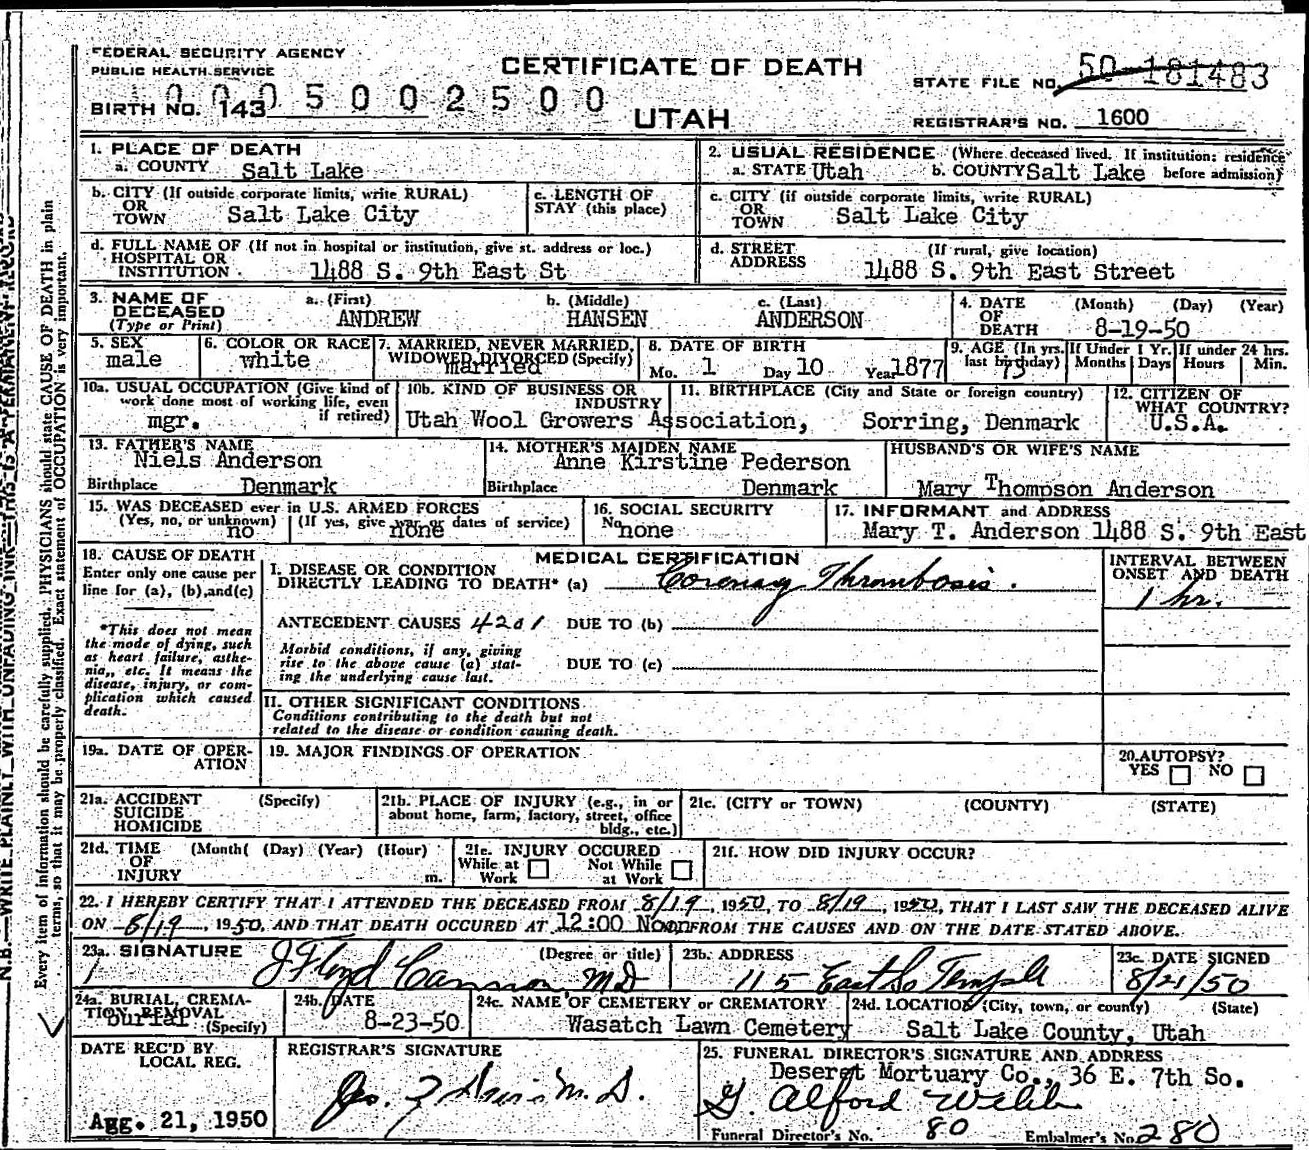 FEDERAL SECURITY AGENCY
PUBLIC HEALTH SERVICE
CERTIFICATE OF DEATH
UTAH
STATE FILE NO. 50 181483
BIRTH NO. 143
0005002500
REGISTRAR'S NO. 1600
1. PLACE OF DEATH
a. COUNTY Salt Lake
2. USUAL RESIDENCE (Where deceased lived. If institution: residence before admission)
a. STATE Utah b. COUNTY Salt Lake
b. CITY (If outside corporate limits, write RURAL)
OR
TOWN Salt Lake City
c. LENGTH OF
STAY (this place)
c. CITY (if outside corporate limits, write RURAL)
OR
TOWN Salt Lake City
d. FULL NAME OF (If not in hospital or institution, give st. address or loc.)
HOSPITAL OR
INSTITUTION 1488 S. 9th East St
d. STREET
ADDRESS (If rural, give location)
1488 S. 9th East Street
3. NAME OF
DECEASED
(Type or Print)
a. (First) b. (Middle) c. (Last)
ANDREW HANSEN ANDERSON
4. DATE
OF
DEATH
(Month) (Day) (Year)
8-19-50
5. SEX
male
6. COLOR OR RACE
white
7. MARRIED, NEVER MARRIED,
WIDOWED DIVORCED (Specify)
married
8. DATE OF BIRTH
Mo. 1 Day 10 Year 1877
9. AGE (In yrs.
last birthday)
73
If Under 1 Yr.
Months Days
If under 24 hrs.
Hours Min.
10a. USUAL OCCUPATION (Give kind of
work done most of working life, even
if retired)
mgr.
10b. KIND OF BUSINESS OR
INDUSTRY
Utah Wool Growers Association,
11. BIRTHPLACE (City and State or foreign country)
Sorring, Denmark
12. CITIZEN OF
WHAT COUNTRY?
U.S.A.
13. FATHER'S NAME
Niels Anderson
Birthplace Denmark
14. MOTHER'S MAIDEN NAME
Anne Kirstine Pederson
Birthplace Denmark
HUSBAND'S OR WIFE'S NAME
Mary Thompson Anderson
15. WAS DECEASED ever in U.S. ARMED FORCES
(Yes, no, or unknown) (If yes, give war or dates of service)
no none
16. SOCIAL SECURITY
No.
none
17. INFORMANT and ADDRESS
Mary T. Anderson 1488 S. 9th East
18. CAUSE OF DEATH
Enter only one cause per
line for (a), (b), and (c)
*This does not mean
the mode of dying, such
as heart failure, asthe-
nia, etc. It means the
disease, injury, or com-
plication which caused
death.
MEDICAL CERTIFICATION
I. DISEASE OR CONDITION
DIRECTLY LEADING TO DEATH* (a) Coronary Thrombosis.
INTERVAL BETWEEN
ONSET AND DEATH
1 hr.
ANTECEDENT CAUSES 4201 DUE TO (b)
Morbid conditions, if any, giving
rise to the above cause (a) stat-
ing the underlying cause last.
DUE TO (c)
II. OTHER SIGNIFICANT CONDITIONS
Conditions contributing to the death but not
related to the disease or condition causing death.
19a. DATE OF OPER-
ATION
19. MAJOR FINDINGS OF OPERATION
20. AUTOPSY?
YES NO
21a. ACCIDENT
SUICIDE
HOMICIDE
(Specify)
21b. PLACE OF INJURY (e.g., in or
about home, farm, factory, street, office
bldg., etc.)
21c. (CITY or TOWN) (COUNTY) (STATE)
21d. TIME
OF
INJURY
(Month( (Day) (Year) (Hour)
m.
21e. INJURY OCCURED
While at
Work
Not While
at Work
21f. HOW DID INJURY OCCUR?
22. I HEREBY CERTIFY THAT I ATTENDED THE DECEASED FROM 8/19, 1950, TO 8/19, 1950, THAT I LAST SAW THE DECEASED ALIVE
ON 8/19, 1950, AND THAT DEATH OCCURED AT 12:00 Noon FROM THE CAUSES AND ON THE DATE STATED ABOVE.
23a. SIGNATURE (Degree or title)
J Floyd Cannon, MD
23b. ADDRESS
115 East So Temple
23c. DATE SIGNED
8/21/50
24a. BURIAL, CREMA-
TION, REMOVAL
(Specify)
burial
24b. DATE
8-23-50
24c. NAME OF CEMETERY or CREMATORY
Wasatch Lawn Cemetery
24d. LOCATION (City, town, or county) (State)
Salt Lake County, Utah
DATE REC'D BY
LOCAL REG.
Agg. 21, 1950
REGISTRAR'S SIGNATURE
M.D.
25. FUNERAL DIRECTOR'S SIGNATURE AND ADDRESS
Deseret Mortuary Co., 36 E. 7th So.
G. Alford Webb
Funeral Director's No. 80 Embalmer's No. 280
N.B.—WRITE PLAINLY WITH UNFADING INK—THIS IS A PERMANENT RECORD
Every item of information should be carefully supplied. PHYSICIANS should state CAUSE OF DEATH in plain
terms, so that it may be properly classified. Exact statement of OCCUPATION is very important.